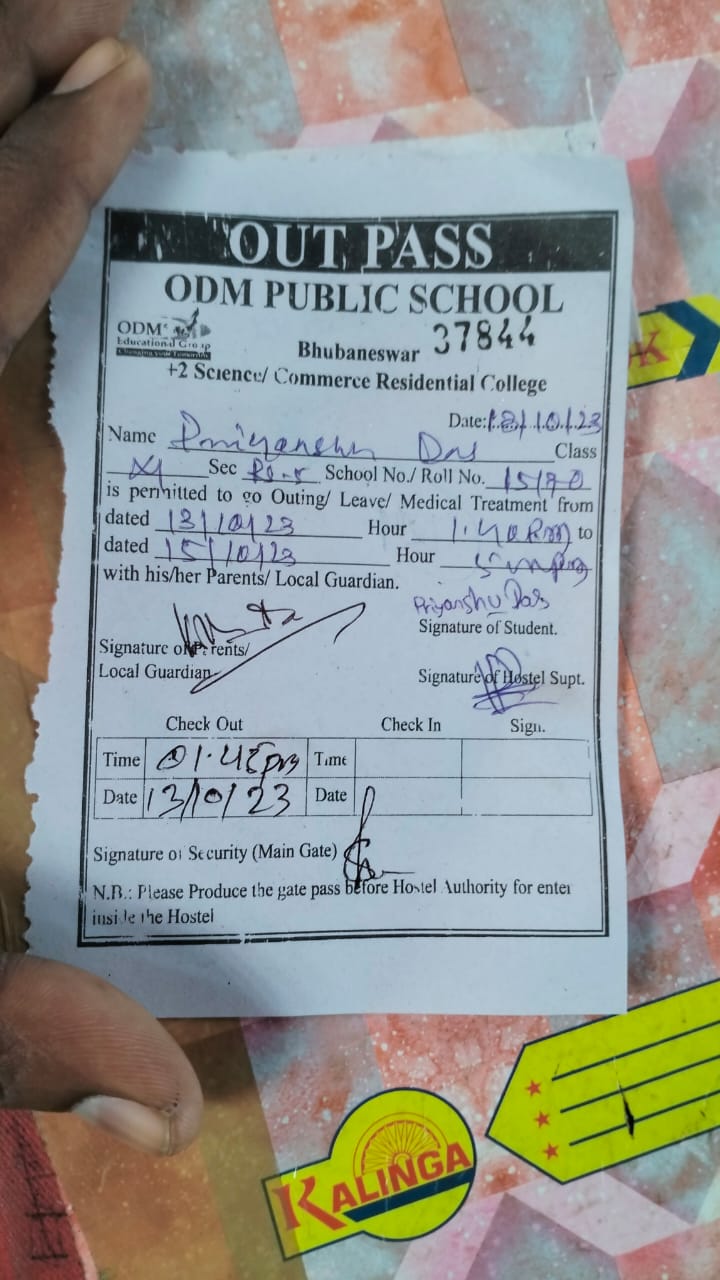 OUT PASS
ODM PUBLIC SCHOOL
ODM
Educational Group
Changing your Tomorrow
Bhubaneswar 37844
+2 Science/ Commerce Residential College
Date: 13/10/23
Name Priyanshu Das Class
XI Sec School No./ Roll No. 15170
is permitted to go Outing/ Leave/ Medical Treatment from
dated 13/10/23 Hour 1.40 Pm to
dated 15/10/23 Hour 5
with his/her Parents/ Local Guardian.
Priyanshu Das
Signature of Parents/
Local Guardian
Signature of Student.
Signature of Hostel Supt.
Check Out Check In Sign.
Time 01.45pm Time
Date 13/10/23 Date
Signature of Security (Main Gate)
N.B.: Please Produce the gate pass before Hostel Authority for enter
inside the Hostel
K
KALINGA